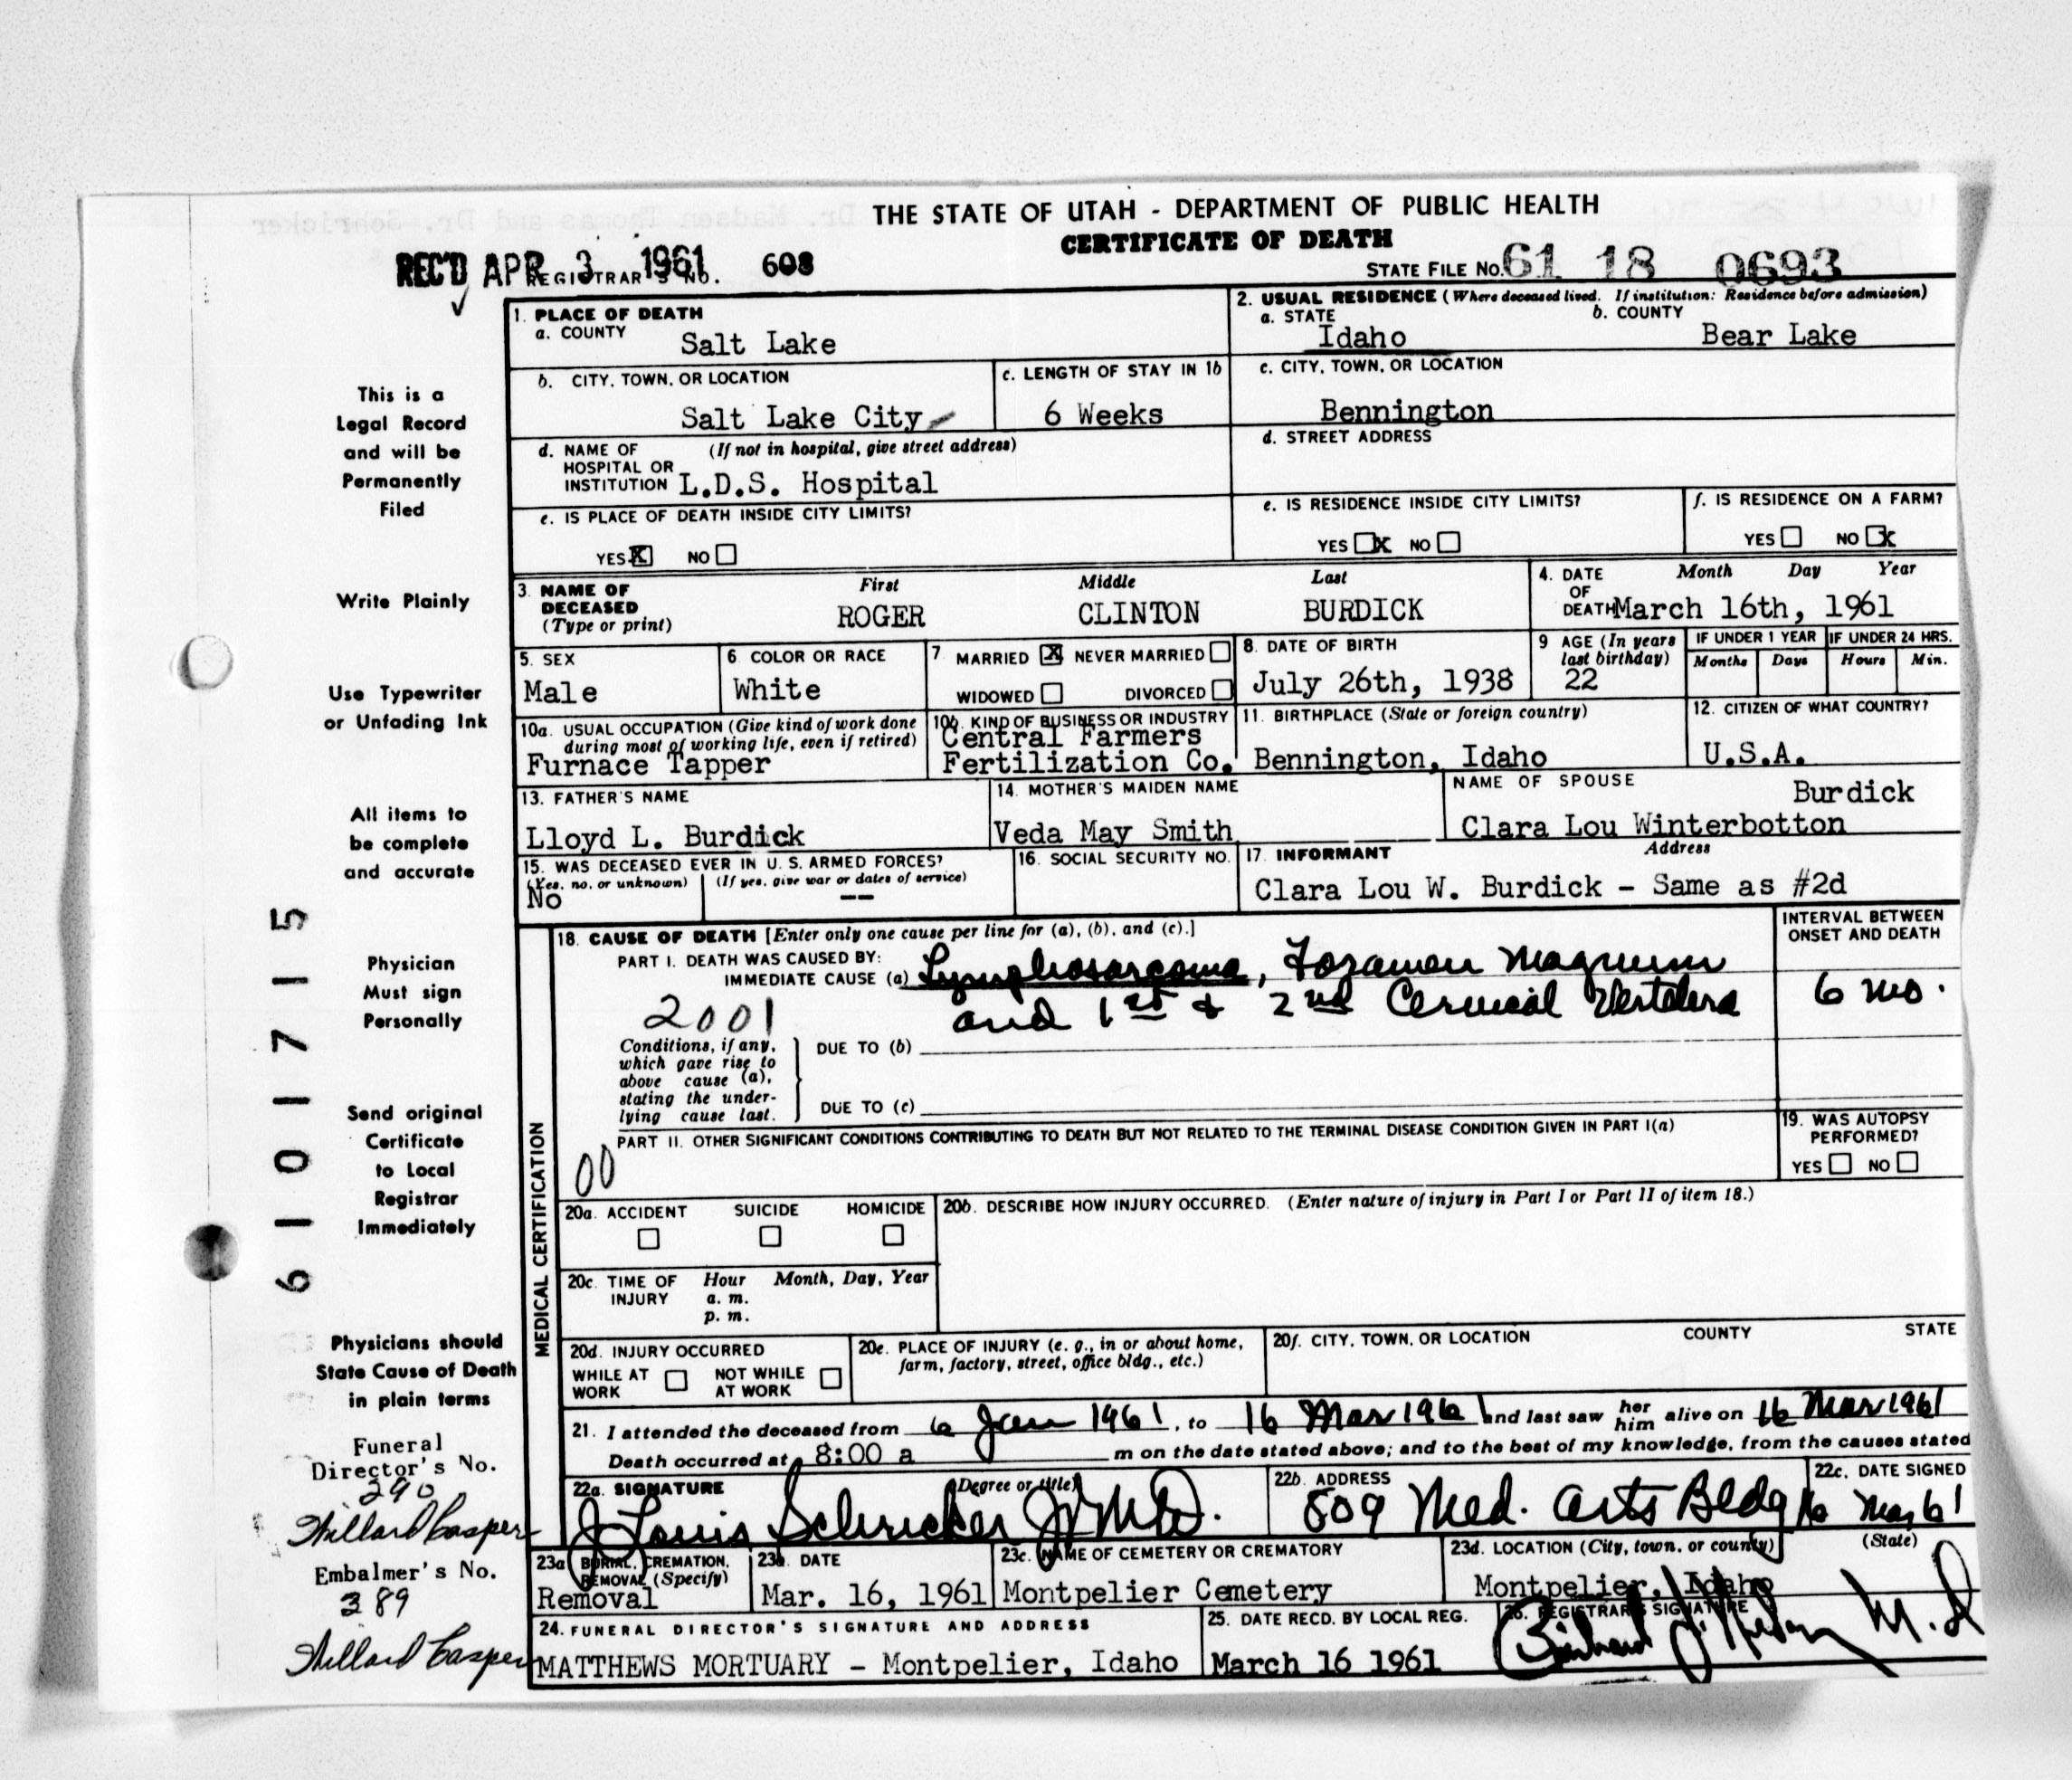 THE STATE OF UTAH - DEPARTMENT OF PUBLIC HEALTH
CERTIFICATE OF DEATH
REC'D APR 3 1961
REGISTRAR'S NO. 608
STATE FILE NO. 61 18 0693
This is a
Legal Record
and will be
Permanently
Filed
Write Plainly
Use Typewriter
or Unfading Ink
All items to
be complete
and accurate
Physician
Must sign
Personally
Send original
Certificate
to Local
Registrar
Immediately
Physicians should
State Cause of Death
in plain terms
Funeral
Director's No.
290
Willard Casper
Embalmer's No.
389
Willard Casper
6101715
1. PLACE OF DEATH
a. COUNTY
Salt Lake
2. USUAL RESIDENCE (Where deceased lived. If institution: Residence before admission)
a. STATE
Idaho
b. COUNTY
Bear Lake
b. CITY, TOWN, OR LOCATION
Salt Lake City
c. LENGTH OF STAY IN 1b
6 Weeks
c. CITY, TOWN, OR LOCATION
Bennington
d. NAME OF HOSPITAL OR INSTITUTION
(If not in hospital, give street address)
L.D.S. Hospital
d. STREET ADDRESS
e. IS PLACE OF DEATH INSIDE CITY LIMITS?
YES X NO
e. IS RESIDENCE INSIDE CITY LIMITS?
YES X NO
f. IS RESIDENCE ON A FARM?
YES NO X
3. NAME OF
DECEASED
(Type or print)
First Middle Last
ROGER CLINTON BURDICK
4. DATE
OF
DEATH
Month Day Year
March 16th, 1961
5. SEX
Male
6 COLOR OR RACE
White
7 MARRIED X NEVER MARRIED
WIDOWED DIVORCED
8. DATE OF BIRTH
July 26th, 1938
9 AGE (In years
last birthday)
22
IF UNDER 1 YEAR
Months Days
IF UNDER 24 HRS.
Hours Min.
10a. USUAL OCCUPATION (Give kind of work done
during most of working life, even if retired)
Furnace Tapper
10b. KIND OF BUSINESS OR INDUSTRY
Central Farmers
Fertilization Co.
11. BIRTHPLACE (State or foreign country)
Bennington, Idaho
12. CITIZEN OF WHAT COUNTRY?
U.S.A.
13. FATHER'S NAME
Lloyd L. Burdick
14. MOTHER'S MAIDEN NAME
Veda May Smith
NAME OF SPOUSE
Burdick
Clara Lou Winterbotton
15. WAS DECEASED EVER IN U. S. ARMED FORCES?
(Yes, no, or unknown) (If yes, give war or dates of service)
No --
16. SOCIAL SECURITY NO.
17. INFORMANT Address
Clara Lou W. Burdick - Same as #2d
MEDICAL CERTIFICATION
18. CAUSE OF DEATH [Enter only one cause per line for (a), (b), and (c).]
INTERVAL BETWEEN
ONSET AND DEATH
PART I. DEATH WAS CAUSED BY:
IMMEDIATE CAUSE (a) Lymphosarcoma, Foramen Magnum
and 1st & 2nd Cervical Vertebra
6 mo.
2001
Conditions, if any,
which gave rise to
above cause (a),
stating the under-
lying cause last.
DUE TO (b)
DUE TO (c)
PART II. OTHER SIGNIFICANT CONDITIONS CONTRIBUTING TO DEATH BUT NOT RELATED TO THE TERMINAL DISEASE CONDITION GIVEN IN PART I(a)
00
19. WAS AUTOPSY
PERFORMED?
YES NO
20a. ACCIDENT SUICIDE HOMICIDE
20b. DESCRIBE HOW INJURY OCCURRED. (Enter nature of injury in Part I or Part II of item 18.)
20c. TIME OF
INJURY
Hour Month, Day, Year
a. m.
p. m.
20d. INJURY OCCURRED
WHILE AT
WORK
NOT WHILE
AT WORK
20e. PLACE OF INJURY (e. g., in or about home,
farm, factory, street, office bldg., etc.)
20f. CITY, TOWN, OR LOCATION COUNTY STATE
21. I attended the deceased from 6 Jan 1961, to 16 Mar 1961 and last saw her him alive on 16 Mar 1961
Death occurred at 8:00 a m on the date stated above; and to the best of my knowledge, from the causes stated
22a. SIGNATURE (Degree or title)
J Louis Schricker Jr MD.
22b. ADDRESS
509 Med. Arts Bldg
22c. DATE SIGNED
16 Mar 61
23a BURIAL, CREMATION,
REMOVAL (Specify)
Removal
23b. DATE
Mar. 16, 1961
23c. NAME OF CEMETERY OR CREMATORY
Montpelier Cemetery
23d. LOCATION (City, town, or county) (State)
Montpelier, Idaho
24. FUNERAL DIRECTOR'S SIGNATURE AND ADDRESS
MATTHEWS MORTUARY - Montpelier, Idaho
25. DATE RECD. BY LOCAL REG.
March 16 1961
26. REGISTRAR'S SIGNATURE
M.D